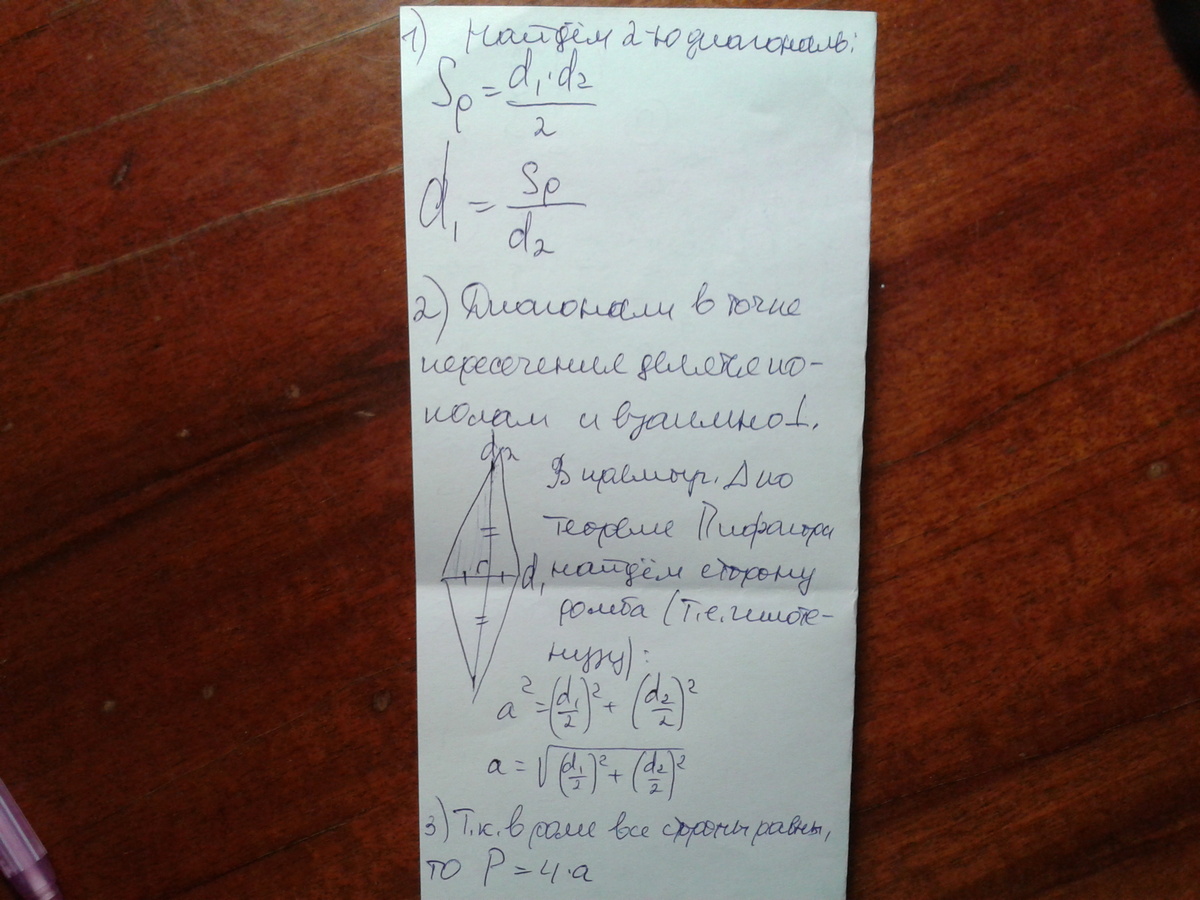 1) Найдём 2-ю диагональ:
Sр = d₁·d₂ / 2
d₁ = Sр / d₂
2) Диагонали в точке
пересечения делятся по-
полам и взаимно ⊥.
d₂
В прямоуг. Δ по
теореме Пифагора
d₁ найдём сторону
ромба (т.е. гипоте-
нузу):
a² = (d₁/2)² + (d₂/2)²
a = √((d₁/2)² + (d₂/2)²)
3) Т.к. в роме все стороны равны,
то P = 4·a